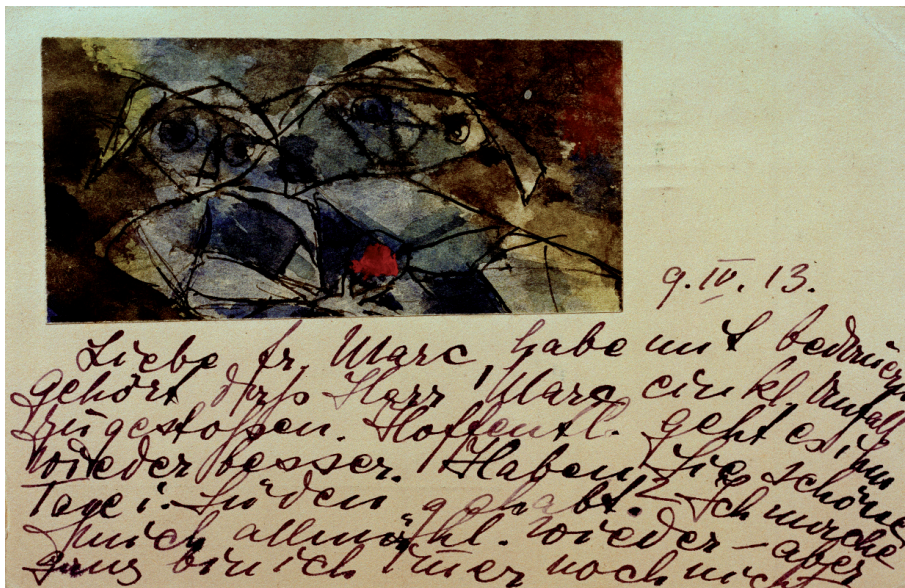 9.IV.13.
Liebe Fr. Marc, habe mit bedauern
gehört, daß Herr Marc ein kl. Unfall
zugestoßen. Hoffentl. geht es ihm
wieder besser. Haben Sie schöne
Tage i. Süden gehabt? Ich
mich allmähl. wieder – aber
ganz bin ich immer noch nicht